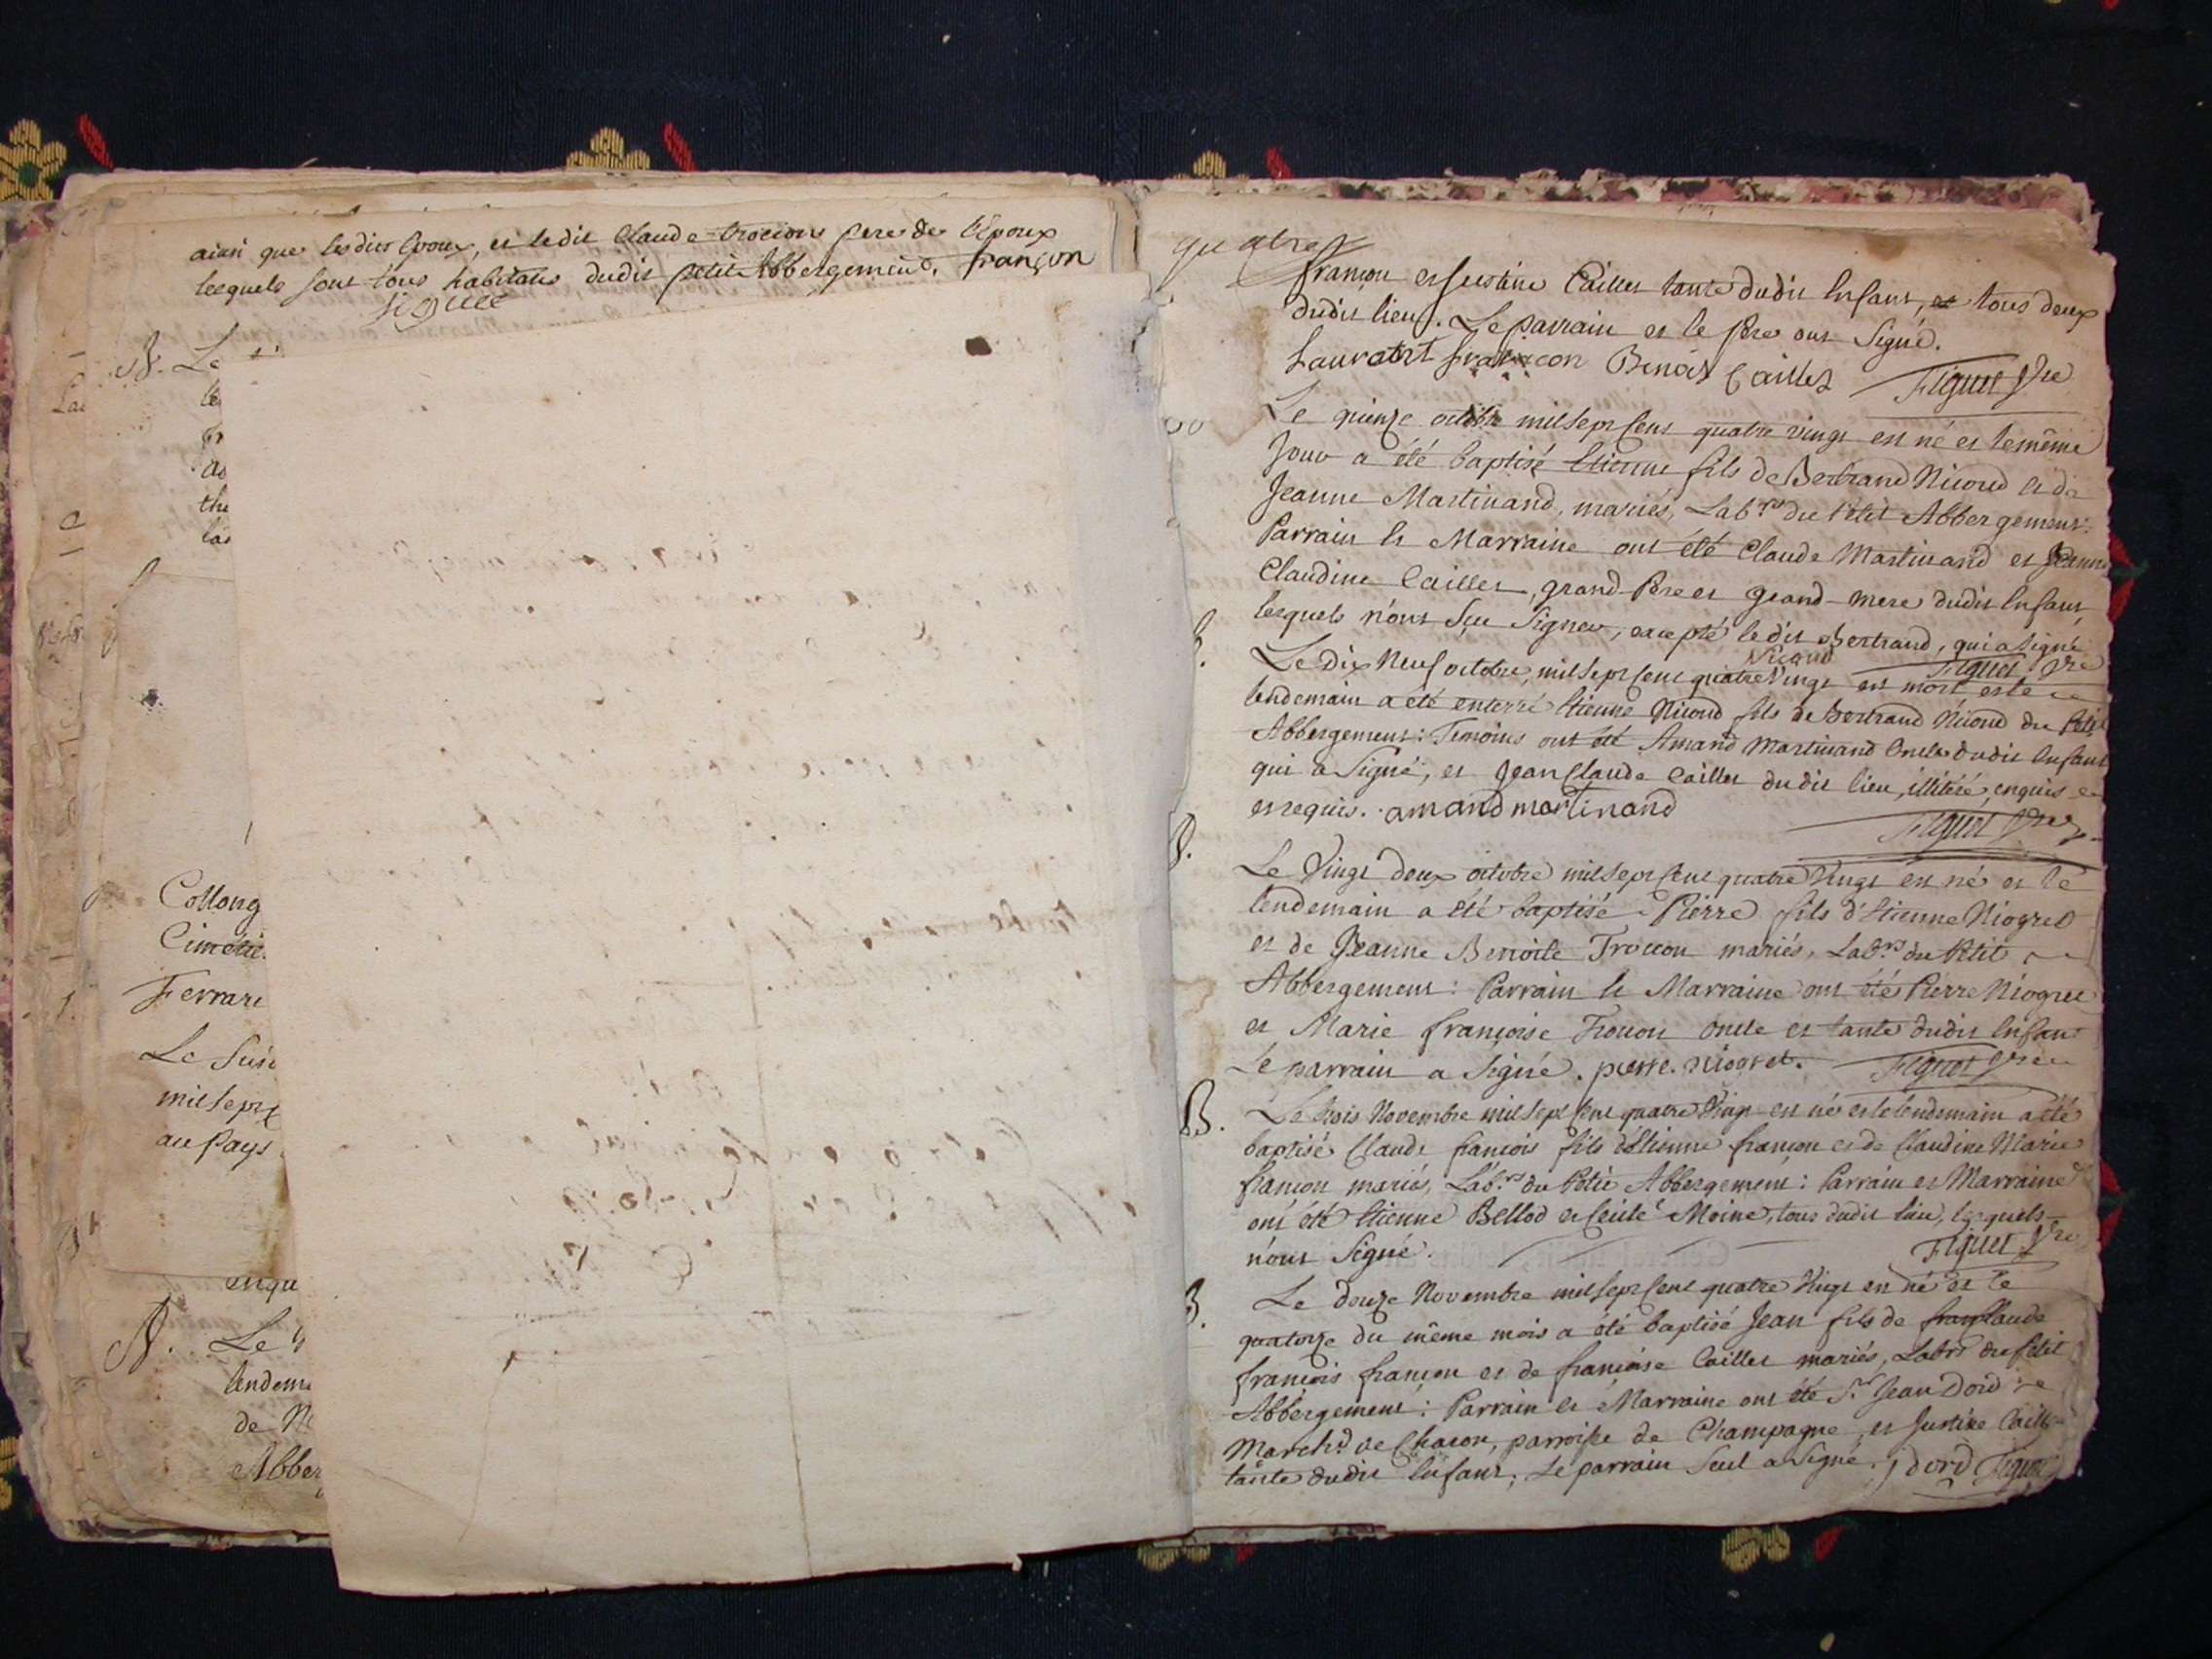 ainsi que lesdits Epoux, et ledit Claude trocion pere de l'Epoux
lesquels sont tous habitans dudit petit Abbergement. françon
signee
N. Le
le
the
Collong
Cimetie
Ferrare
Le Sus
mil sept
au Pays
enqu
N. Le
lendem
de N
Abber
quatre
françon et Justine Caillet tante dudit Enfant, et tous deux
dudit lieu. Le parrain et le Pere ont Signé.
Laurant françon Benoit Caillet Figuet Vre
Le quinze octobre mil sept Cent quatre vingt est né et le même
Jour a été baptisé Etienne fils de Bertrand Nicoud et de
Jeanne Martinand, mariés, Lab.rs du Petit Abbergement:
Parrain et Marraine ont été Claude Martinand et Jeanne
Claudine Caillet, grand-Pere et grand-mere dudit Enfant,
lesquels n'ont Sçu Signer, excepté ledit Bertrand, qui a signé
Nicoud Figuet Vre
Le dix Neuf octobre, mil sept Cent quatre Vingt est mort et le
lendemain a été enterré Etienne Nicoud fils de Bertrand Nicoud du Petit
Abbergement: Temoins ont été Amand Martinand Oncle dudit Enfant
qui a Signé, et Jean Claude Caillet dudit lieu, illitéré, enquis
et requis. amand martinand
Figuet Vre
Le Vingt deux octobre mil sept Cent quatre Vingt est né et le
lendemain a été baptisé Pierre fils d'Etienne Niogret
et de Jeanne Benoite Troccon mariés, Lab.rs du Petit
Abbergement: Parrain et Marraine ont été Pierre Niogret
et Marie françoise Troccon oncle et tante dudit Enfant
Le parrain a Signé. pierre. niogret. Figuet Vre
B. Le trois Novembre mil sept Cent quatre Vingt est né et le lendemain a été
baptisé Claude françois fils d'Etienne françon et de Claudine Marie
françon mariés, Lab.rs du Petit Abbergement: Parrain et Marraine
ont été Etienne Bellod et Moine, tous dudit lieu, lesquels
n'ont Signé. Figuet Vre
B. Le douze Novembre mil sept Cent quatre Vingt est né et le
quatorze du même mois a été baptisé Jean fils de Claude
françois françon et de françoise Caillet mariés, Labrs du Petit
Abbergement: Parrain et Marraine ont été S.r Jean Dord
March.d de Chacon, parroisse de Champagne, et Justine Caillet
tante dudit Enfant; Le parrain Seul a Signé. j dord Figuet